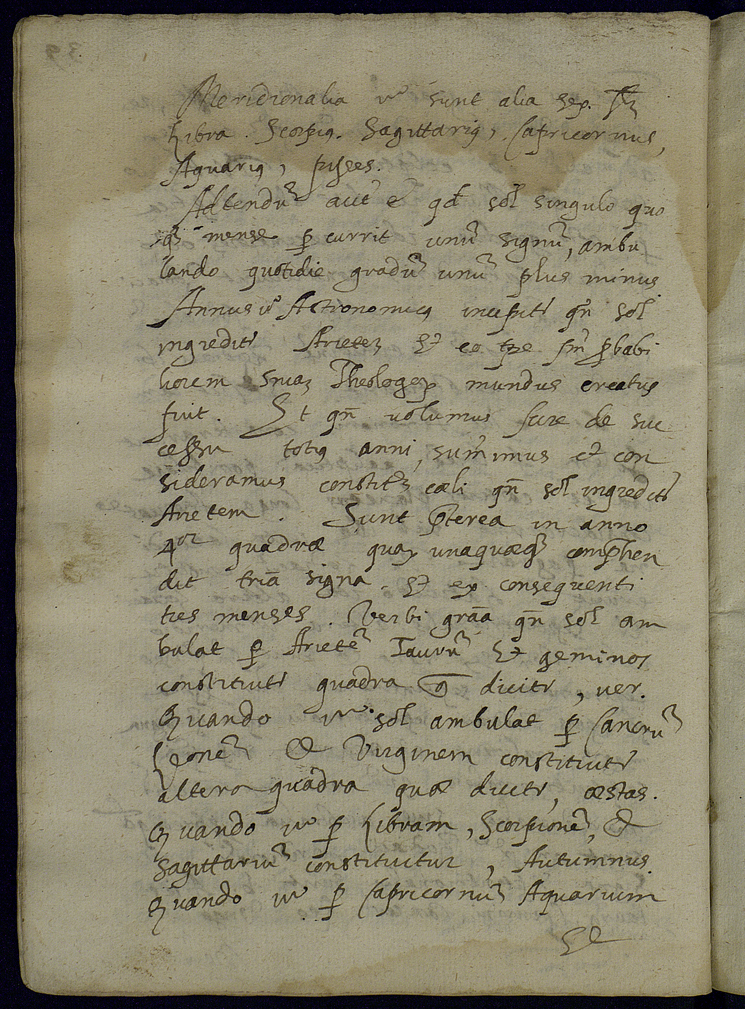 Meridionalia vᵒ sunt alia sex.
Libra. Scorpiꝰ. Sagittariꝰ, Capricornus,
Aquariꝰ, pisces.
Adtendũ aut̃ ẽ qd̃ sol singulo quo
qꝫ mense ꝑ currit unũ signũ, ambu
lando quotidie gradũ unũ plus minus
Annus vᵒ Astronomicꝰ incipitʳ qñ sol
ingreditʳ Arietem Et eo tpe sm̃ ꝓbabi
liorem sniaꝫ Theologoꝝ mundus creatus
fuit. Et qñ volumus scire de suc
cessu totiꝰ anni, sumimus et con
sideramus constitẽ cæli qñ sol ingreditʳ
Arietem. Sunt p̃terea in anno
4ᵒʳ quadræ quaꝝ unaquæqꝫ comp̃hen
dit tria signa. Et ex consequenti
tres menses. Verbi grãa qñ sol am
bulat ꝑ Arietẽ Taurũ Et geminos
constituitʳ quadra q̃ dicitʳ, ver.
Quando vᵒ sol ambulat ꝑ Cancrũ
Leonẽ Et Virginem constituitʳ
altera quadra quæ dicitʳ, æstas.
Quando vᵒ ꝑ Libram, Scorpionẽ, Et
Sagittariũ constituitur, Autumnus.
Quando vᵒ ꝑ Capricornũ Aquarium
Et